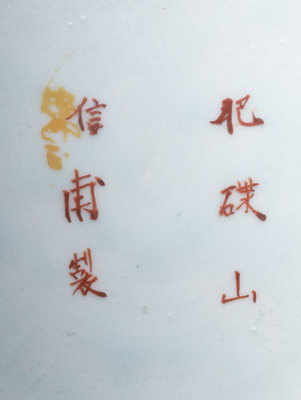 肥碟山
信甫製